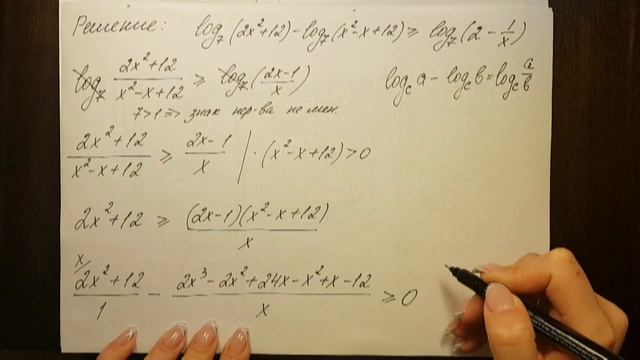 Решение: log₇(2x²+12) - log₇(x²-x+12) ≥ log₇(2 - 1/x)
log₇ (2x²+12)/(x²-x+12) ≥ log₇ ((2x-1)/x) log_c a - log_c b = log_c a/b
7>1 => знак нер-ва не мен.
(2x²+12)/(x²-x+12) ≥ (2x-1)/x | · (x²-x+12) > 0
2x²+12 ≥ ((2x-1)(x²-x+12))/x
x/ (2x²+12)/1 - (2x³-2x²+24x-x²+x-12)/x ≥ 0